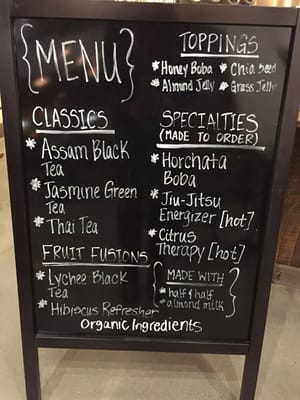 {MENU}
CLASSICS
* Assam Black
Tea
* Jasmine Green
Tea
* Thai Tea
FRUIT FUSIONS
* Lychee Black
Tea
* Hibiscus Refresher
TOPPINGS
* Honey Boba * Chia Seed
* Almond Jelly * Grass Jelly
SPECIALTIES
(MADE TO ORDER)
* Horchata
Boba
* Jiu-Jitsu
Energizer [hot]
* Citrus
Therapy [hot]
{MADE WITH
* half & half
* almond milk}
Organic Ingredients